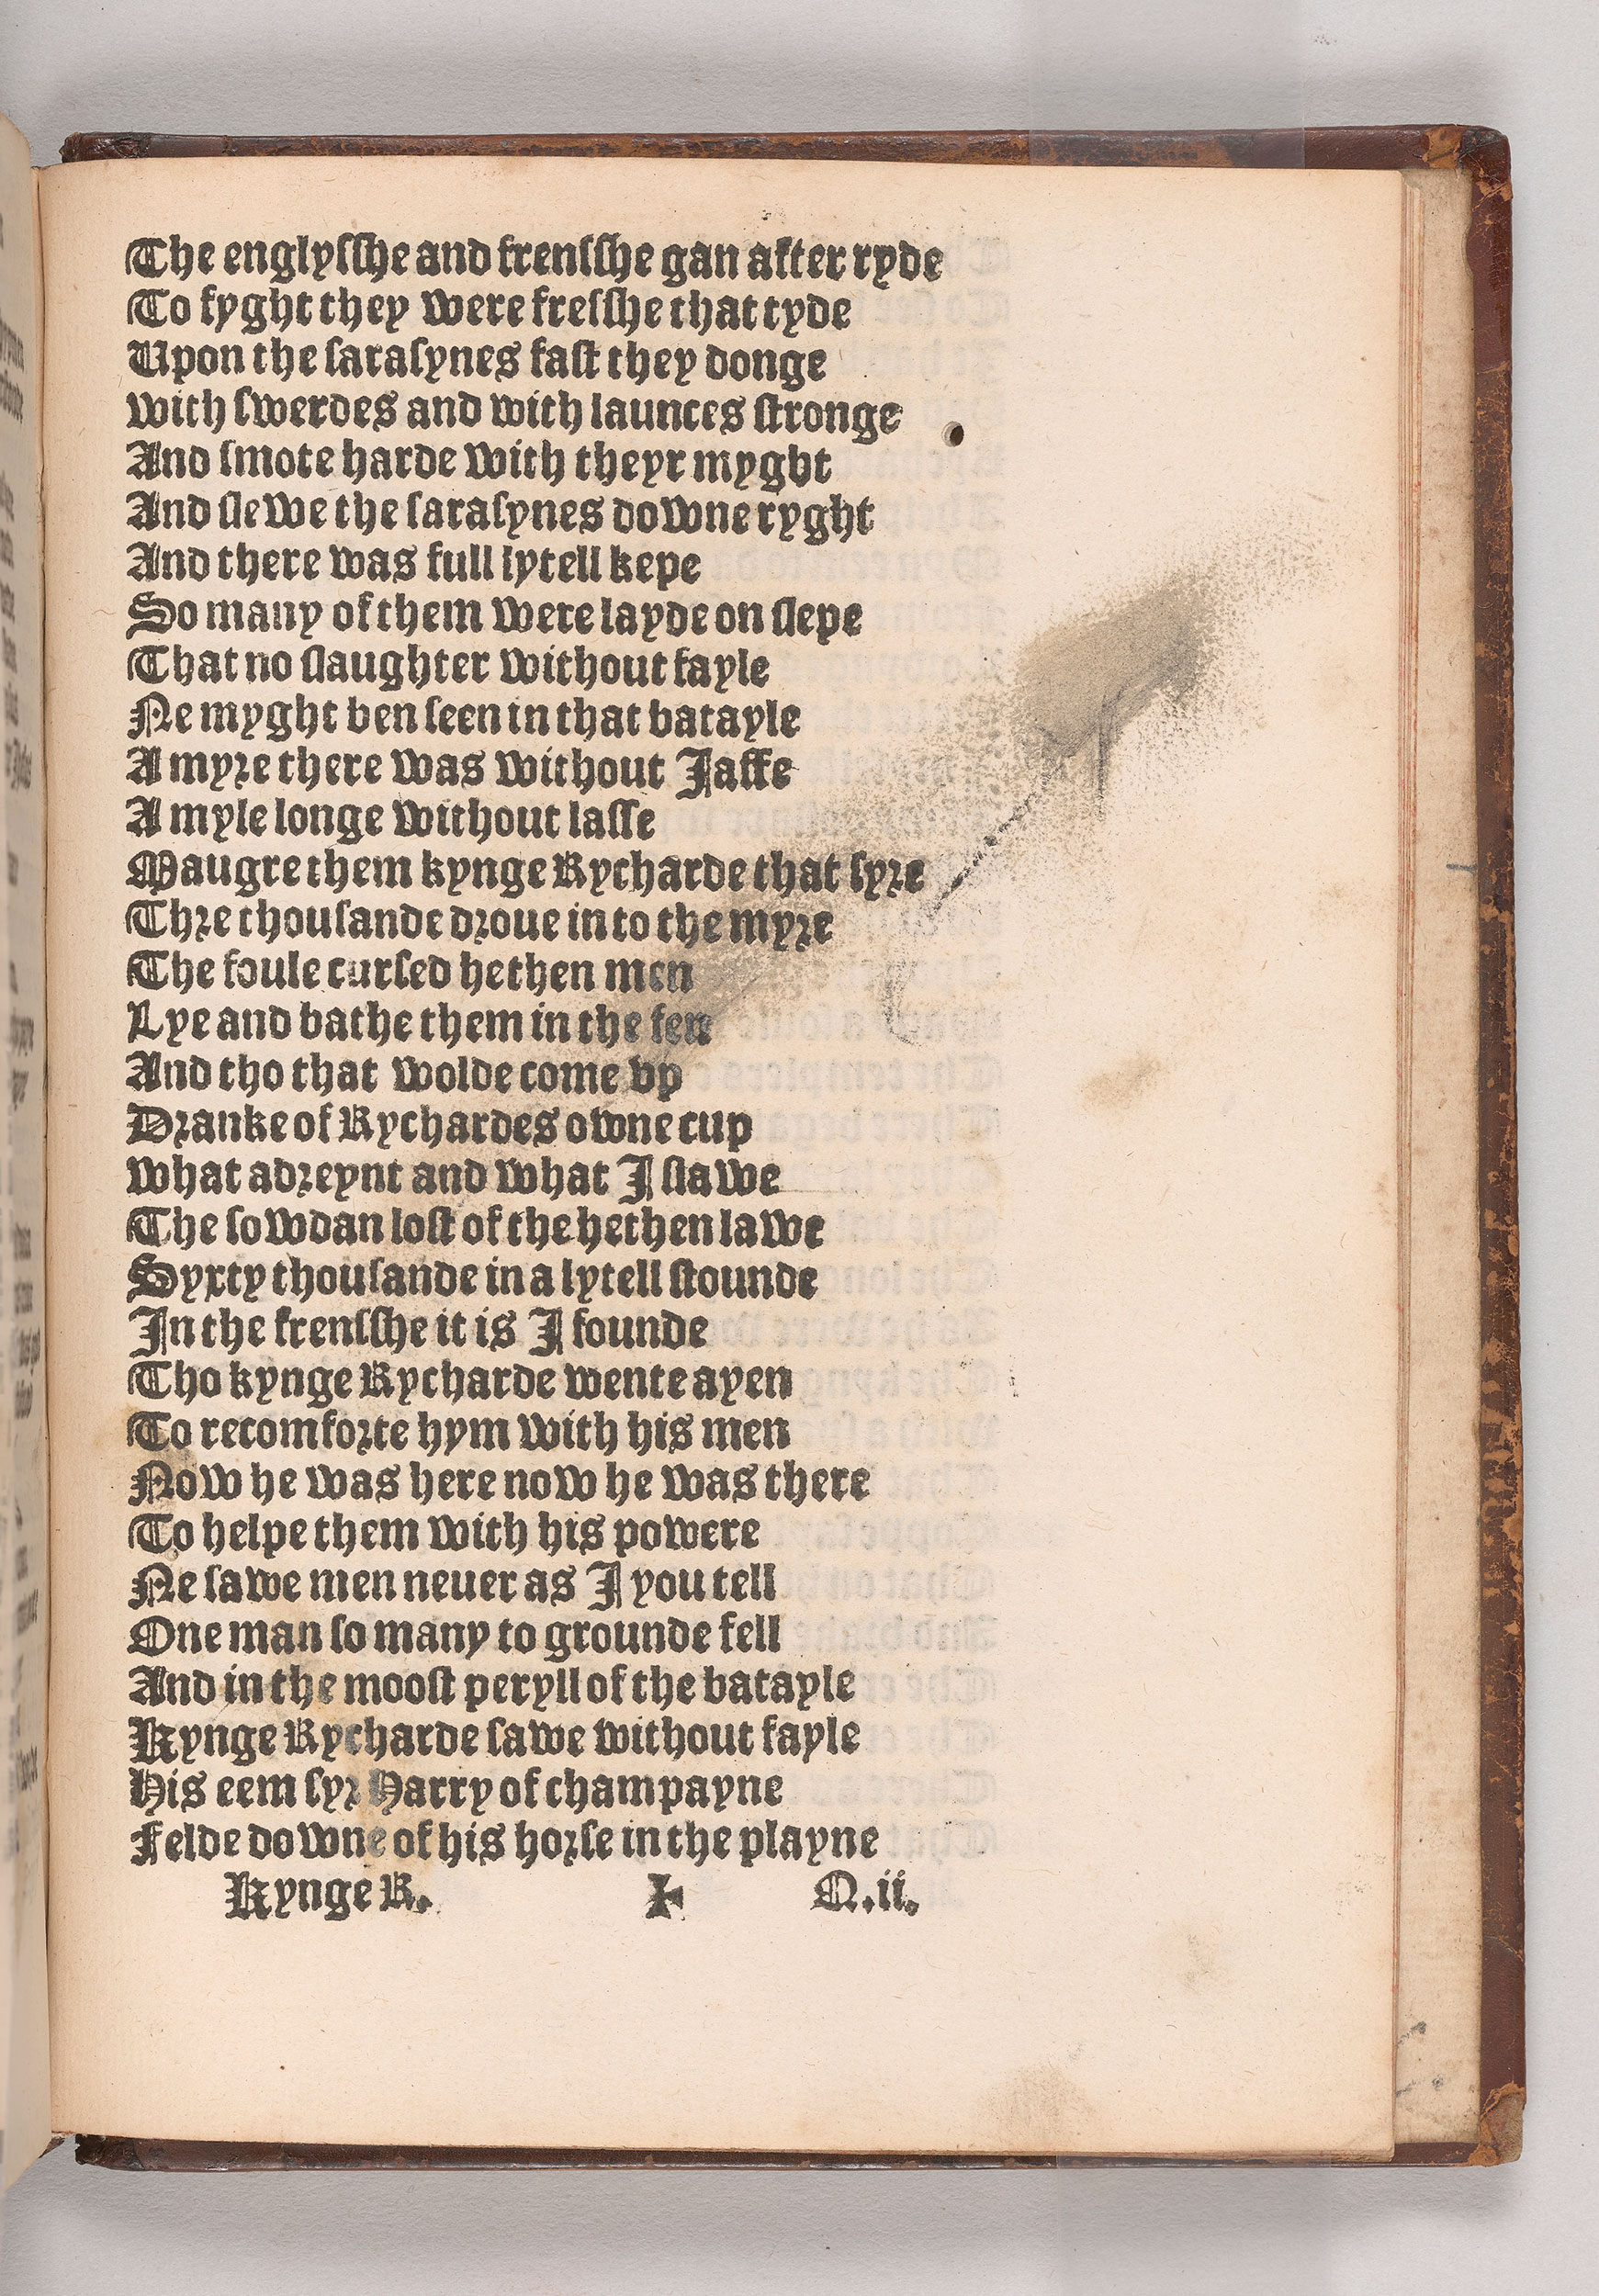 The englyſſhe and frenſſhe gan after ryde
To fyght they were freſſhe that tyde
Upon the ſaraſynes faſt they donge
with ſwerdes and with launces ſtronge
And ſmote harde with theyr myght
And ſlewe the ſaraſynes downe ryght
And there was full lytell kepe
So many of them were layde on ſlepe
That no ſlaughter without fayle
Ne myght ben ſeen in that batayle
A myꝛe there was without Jaffe
A myle longe without laſſe
Maugre them kynge Rycharde that ſyꝛe
Thꝛe thouſande dꝛoue in to the myꝛe
The foule curſed hethen men
Lye and bathe them in the fen
And tho that wolde come vp
Dꝛanke of Rychardes owne cup
what adꝛeynt and what I ſlawe
The ſowdan loſt of the hethen lawe
Syxty thouſande in a lytell ſtounde
In the frenſſhe it is I founde
Tho kynge Rycharde wente ayen
To recomfoꝛte hym with his men
Now he was here now he was there
To helpe them with his powere
Ne ſawe men neuer as I you tell
One man ſo many to grounde fell
And in the mooſt peryll of the batayle
Kynge Rycharde ſawe without fayle
His eem ſyꝛ Harry of champayne
Felde downe of his hoꝛſe in the playne
Kynge R. ✠ Q.ii.